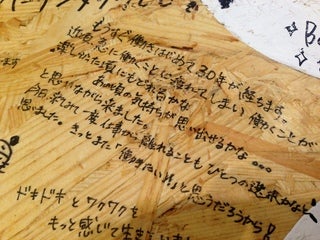 もうすぐ働きはじめて30年が経ちます。
近頃急に働くことに疲れてしまい 働くことが
楽しかった場にもどれるかな
あの頃の気持ちが思い出せるかな。。。
と思いながら来ました。
今日来てみて 仕事から離れることも ひとつの選択かなと
思いました。きっとまた「働きたい!!」と思うだろうから!
ドキドキとワクワクを
もっと感じて生き
ます
Be